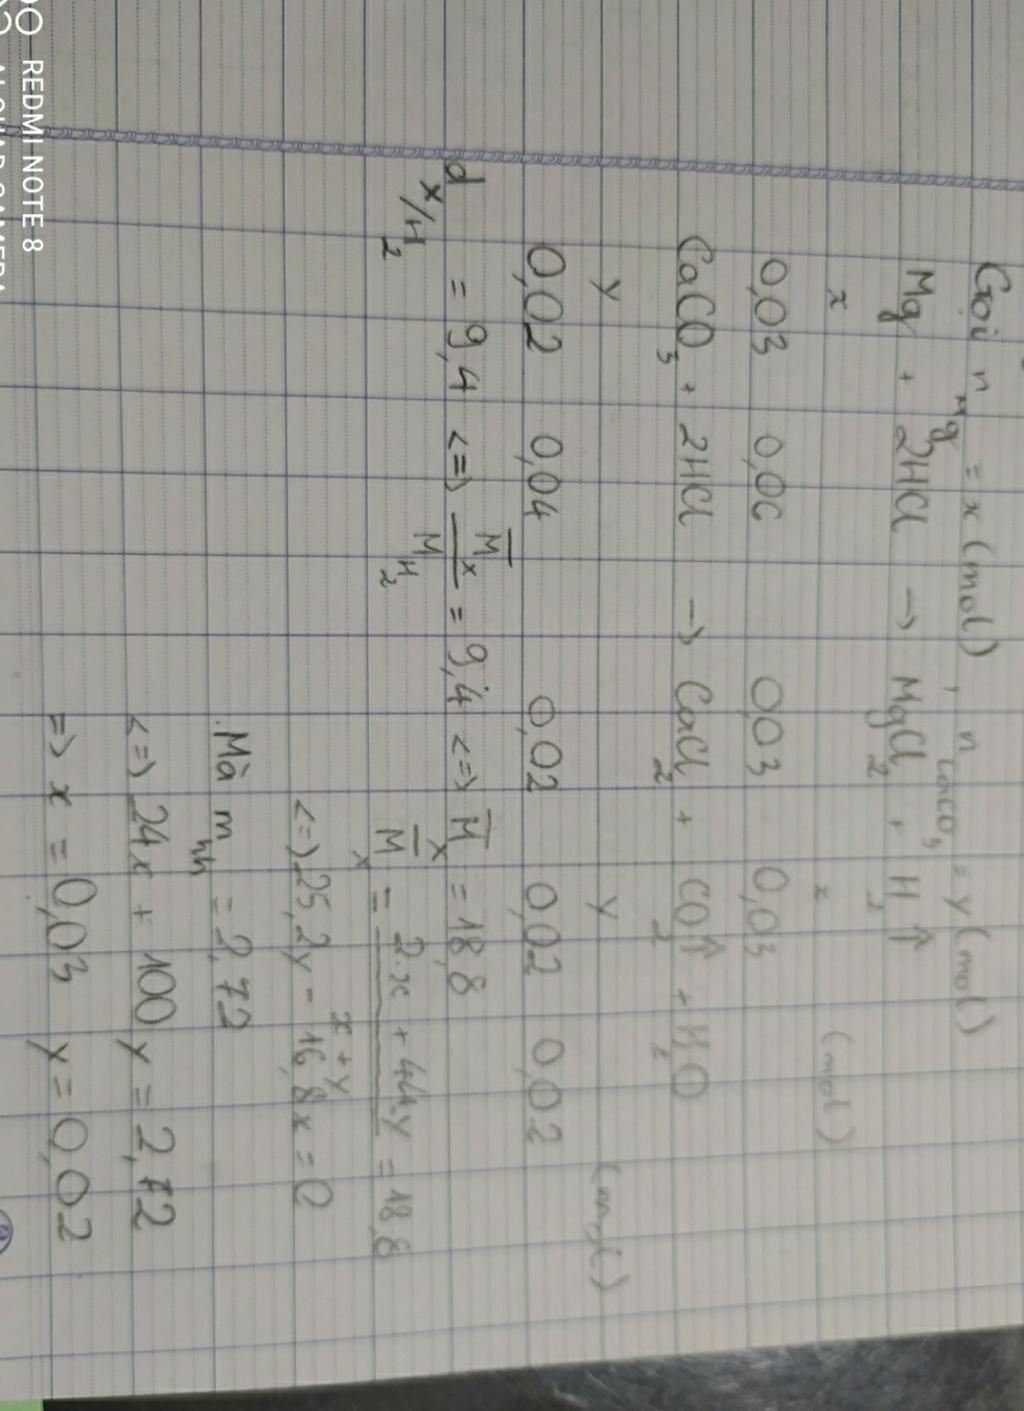 Gọi n Mg = x (mol), n CaCO3 = y (mol)
Mg + 2HCl → MgCl2 + H2↑
x x (mol)
0,03 0,06 0,03 0,03
CaCO3 + 2HCl → CaCl2 + CO2↑ + H2O
y y (mol)
0,02 0,04 0,02 0,02 0,02
d X/H2 = 9,4 <=> M̅X / MH2 = 9,4 <=> M̅X = 18,8
M̅X = 2.x + 44.y / x + y = 18,8
<=> 25,2y - 16,8x = 0
Mà m hh = 2,72
<=> 24x + 100y = 2,72
=> x = 0,03 y = 0,02
REDMI NOTE 8